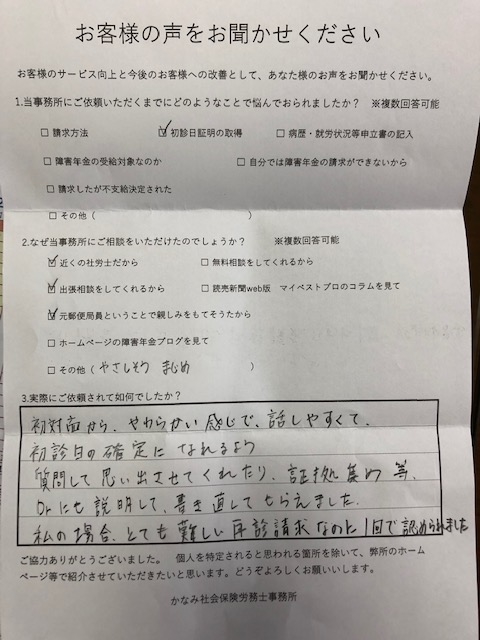 お客様の声をお聞かせください
お客様のサービス向上と今後のお客様への改善として、あなた様のお声をお聞かせください。
1.当事務所にご依頼いただくまでにどのようなことで悩んでおられましたか？ ※複数回答可能
□ 請求方法 ☑ 初診日証明の取得 □ 病歴・就労状況等申立書の記入
□ 障害年金の受給対象なのか □ 自分では障害年金の請求ができないから
□ 請求したが不支給決定された
□ その他（ ）
2.なぜ当事務所にご相談をいただけたのでしょうか？ ※複数回答可能
☑ 近くの社労士だから □ 無料相談をしてくれるから
☑ 出張相談をしてくれるから □ 読売新聞web版 マイベストプロのコラムを見て
☑ 元郵便局員ということで親しみをもてそうだから
□ ホームページの障害年金ブログを見て
□ その他（ やさしそう まじめ ）
3.実際にご依頼されて如何でしたか？
初対面から、やわらかい感じで、話しやすくて、
初診日の確定になれるよう
質問して思い出させてくれたり、証拠集め等、
Drにも説明して、書き直してもらえました。
私の場合、とても難しい再診請求なのに1回で認められました
ご協力ありがとうございました。 個人を特定されると思われる箇所を除いて、弊所のホーム
ページ等で紹介させていただきたいと思います。どうぞよろしくお願いいします。
かなみ社会保険労務士事務所